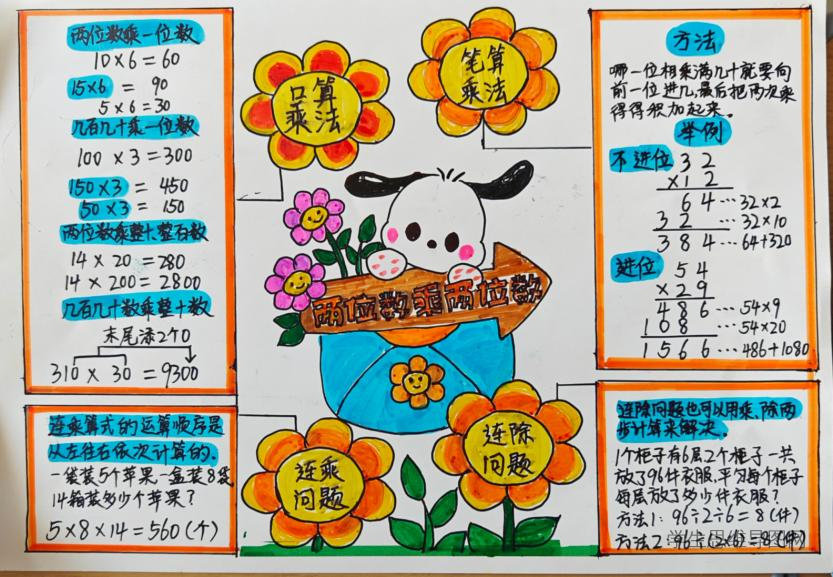 两位数乘一位数
10×6=60
15×6 = 90
5×6=30
几百几十乘一位数
100×3=300
150×3 = 450
50×3 = 150
两位数乘整十、整百数
14×20=280
14×200=2800
几百几十数乘整十数
末尾添2个0
310×30=9300
口算
乘法
笔算
乘法
方法
哪一位相乘满几十就要向
前一位进几,最后把两次乘
得得积加起来。
举例
不进位 32
×12
64…32×2
32 …32×10
384…64+320
进位 54
×29
486…54×9
108 …54×20
1566…486+1080
两位数乘两位数
连乘算式的运算顺序是
从左往右依次计算的.
一袋装5个苹果,一盒装8袋
14箱装多少个苹果?
5×8×14=560(个)
连乘
问题
连除
问题
连除问题也可以用乘、除两
步计算来解决。
1个柜子有6层2个柜子一共
放了96件衣服,平均每个柜子
每层放了多少件衣服?
方法1: 96÷2÷6=8(件)
方法2: 96÷(2×6)=8(件)
学生思维导图网